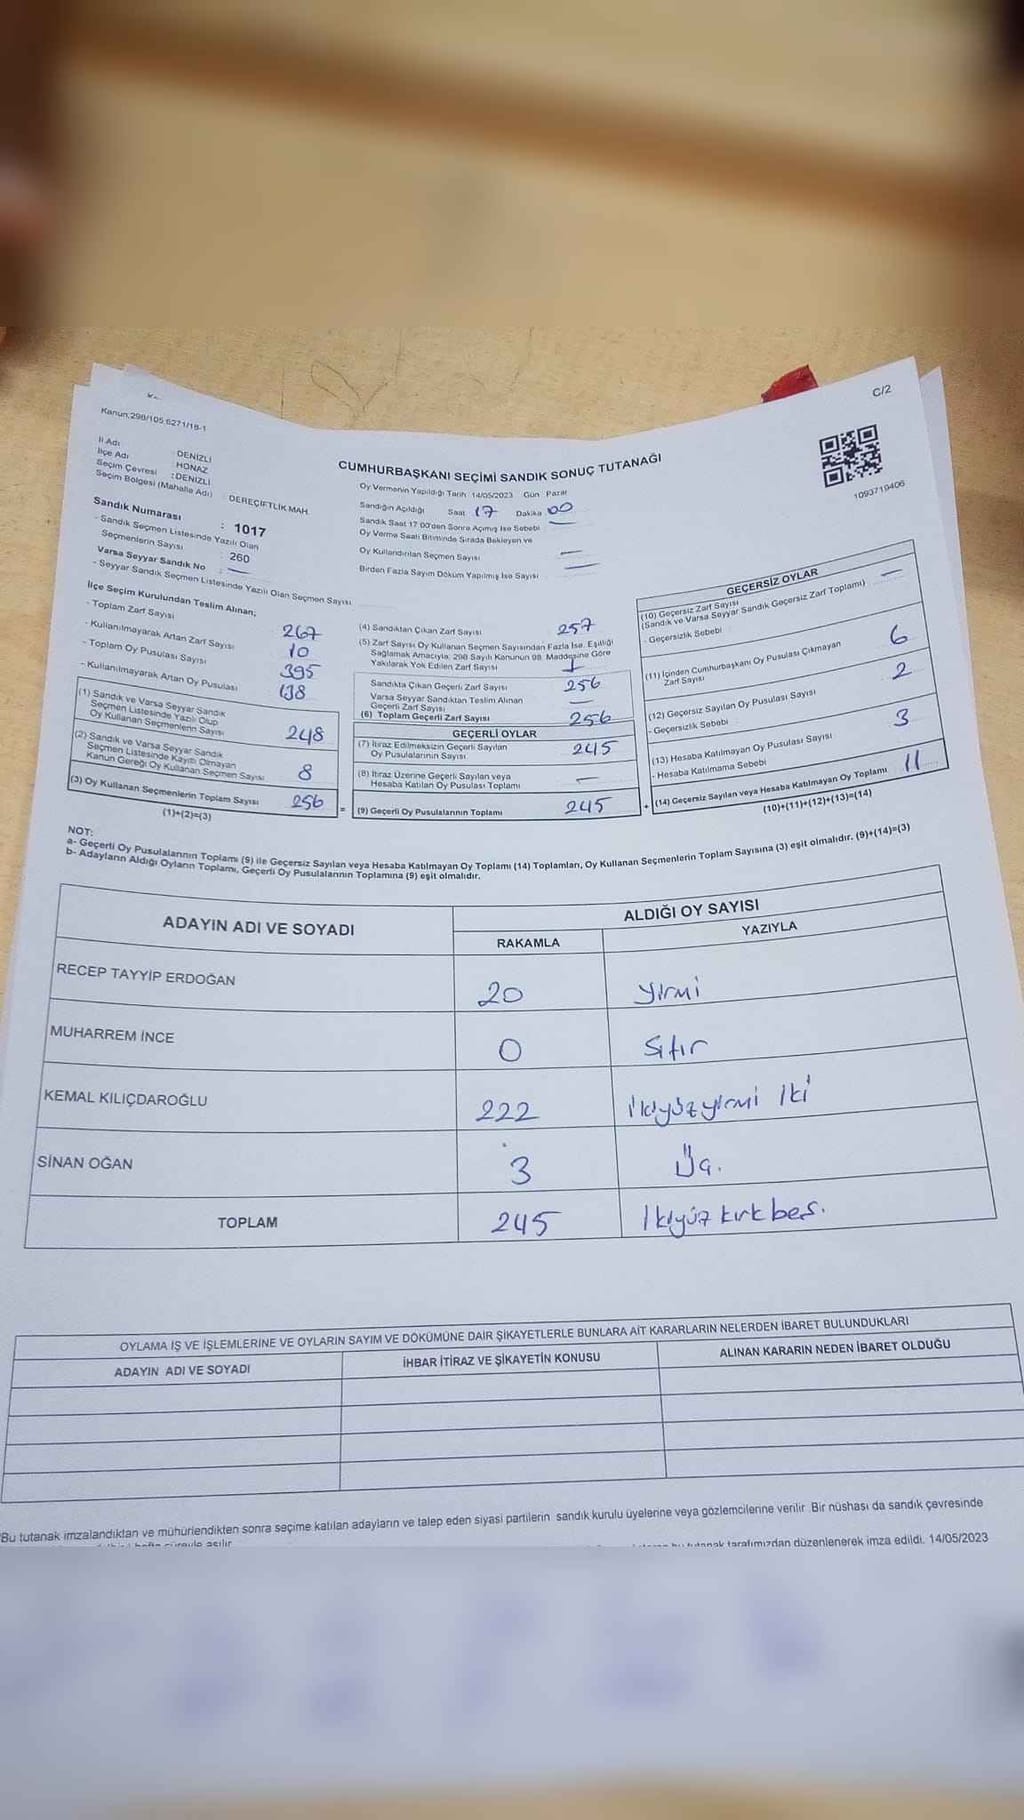 C/2
Kanun.298/105 6271/18-1
İl Adı : DENİZLİ
İlçe Adı : HONAZ
Seçim Çevresi : DENİZLİ
Seçim Bölgesi (Mahalle Adı) : DEREÇİFTLİK MAH.
Sandık Numarası : 1017
- Sandık Seçmen Listesinde Yazılı Olan
Seçmenlerin Sayısı : 260
Varsa Seyyar Sandık No : —
- Seyyar Sandık Seçmen Listesinde Yazılı Olan Seçmen Sayısı
CUMHURBAŞKANI SEÇİMİ SANDIK SONUÇ TUTANAĞI
Oy Vermenin Yapıldığı Tarih 14/05/2023 Gün Pazar
Sandığın Açıldığı Saat 17 Dakika 00
Sandık Saat 17 00'den Sonra Açımış İse Sebebi —
Oy Verme Saati Bitiminde Sırada Bekleyen ve
Oy Kullandırılan Seçmen Sayısı —
Birden Fazla Sayım Döküm Yapılmış İse Sayısı —
1093719406
İlçe Seçim Kurulundan Teslim Alınan;
- Toplam Zarf Sayısı 267
- Kullanılmayarak Artan Zarf Sayısı 10
- Toplam Oy Pusulası Sayısı 395
- Kullanılmayarak Artan Oy Pusulası 138
(1) Sandık ve Varsa Seyyar Sandık
Seçmen Listesinde Yazılı Olup
Oy Kullanan Seçmenlerin Sayısı 248
(2) Sandık ve Varsa Seyyar Sandık
Seçmen Listesinde Kayıtlı Olmayan
Kanun Gereği Oy Kullanan Seçmen Sayısı 8
(3) Oy Kullanan Seçmenlerin Toplam Sayısı 256
(1)+(2)=(3)
(4) Sandıktan Çıkan Zarf Sayısı 257
(5) Zarf Sayısı Oy Kullanan Seçmen Sayısından Fazla İse, Eşitliği
Sağlamak Amacıyla, 298 Sayılı Kanunun 98. Maddesine Göre
Yakılarak Yok Edilen Zarf Sayısı 1
Sandıkta Çıkan Geçerli Zarf Sayısı 256
Varsa Seyyar Sandıktan Teslim Alınan
Geçerli Zarf Sayısı —
(6) Toplam Geçerli Zarf Sayısı 256
GEÇERLİ OYLAR
(7) İtiraz Edilmeksizin Geçerli Sayılan
Oy Pusulalarının Sayısı 245
(8) İtiraz Üzerine Geçerli Sayılan veya
Hesaba Katılan Oy Pusulası Toplamı —
= (9) Geçerli Oy Pusulalarının Toplamı 245
GEÇERSİZ OYLAR
(10) Geçersiz Zarf Sayısı
(Sandık ve Varsa Seyyar Sandık Geçersiz Zarf Toplamı) —
- Geçersizlik Sebebi
(11) İçinden Cumhurbaşkanı Oy Pusulası Çıkmayan
Zarf Sayısı 6
(12) Geçersiz Sayılan Oy Pusulası Sayısı 2
- Geçersizlik Sebebi
(13) Hesaba Katılmayan Oy Pusulası Sayısı 3
- Hesaba Katılmama Sebebi
+ (14) Geçersiz Sayılan veya Hesaba Katılmayan Oy Toplamı 11
(10)+(11)+(12)+(13)=(14)
NOT:
a- Geçerli Oy Pusulalarının Toplamı (9) ile Geçersiz Sayılan veya Hesaba Katılmayan Oy Toplamı (14) Toplamları, Oy Kullanan Seçmenlerin Toplam Sayısına (3) eşit olmalıdır. (9)+(14)=(3)
b- Adayların Aldığı Oyların Toplamı, Geçerli Oy Pusulalarının Toplamına (9) eşit olmalıdır.
ADAYIN ADI VE SOYADI
ALDIĞI OY SAYISI
RAKAMLA YAZIYLA
RECEP TAYYİP ERDOĞAN 20 yirmi
MUHARREM İNCE 0 Sıfır
KEMAL KILIÇDAROĞLU 222 ikiyüzyirmi iki
SİNAN OĞAN 3 Üç.
TOPLAM 245 İkiyüz kırkbeş.
OYLAMA İŞ VE İŞLEMLERİNE VE OYLARIN SAYIM VE DÖKÜMÜNE DAİR ŞİKAYETLERLE BUNLARA AİT KARARLARIN NELERDEN İBARET BULUNDUKLARI
ADAYIN ADI VE SOYADI
İHBAR İTİRAZ VE ŞİKAYETİN KONUSU
ALINAN KARARIN NEDEN İBARET OLDUĞU
Bu tutanak imzalandıktan ve mühürlendikten sonra seçime katılan adayların ve talep eden siyasi partilerin sandık kurulu üyelerine veya gözlemcilerine verilir. Bir nüshası da sandık çevresinde
tutanak tarafımızdan düzenlenerek imza edildi. 14/05/2023